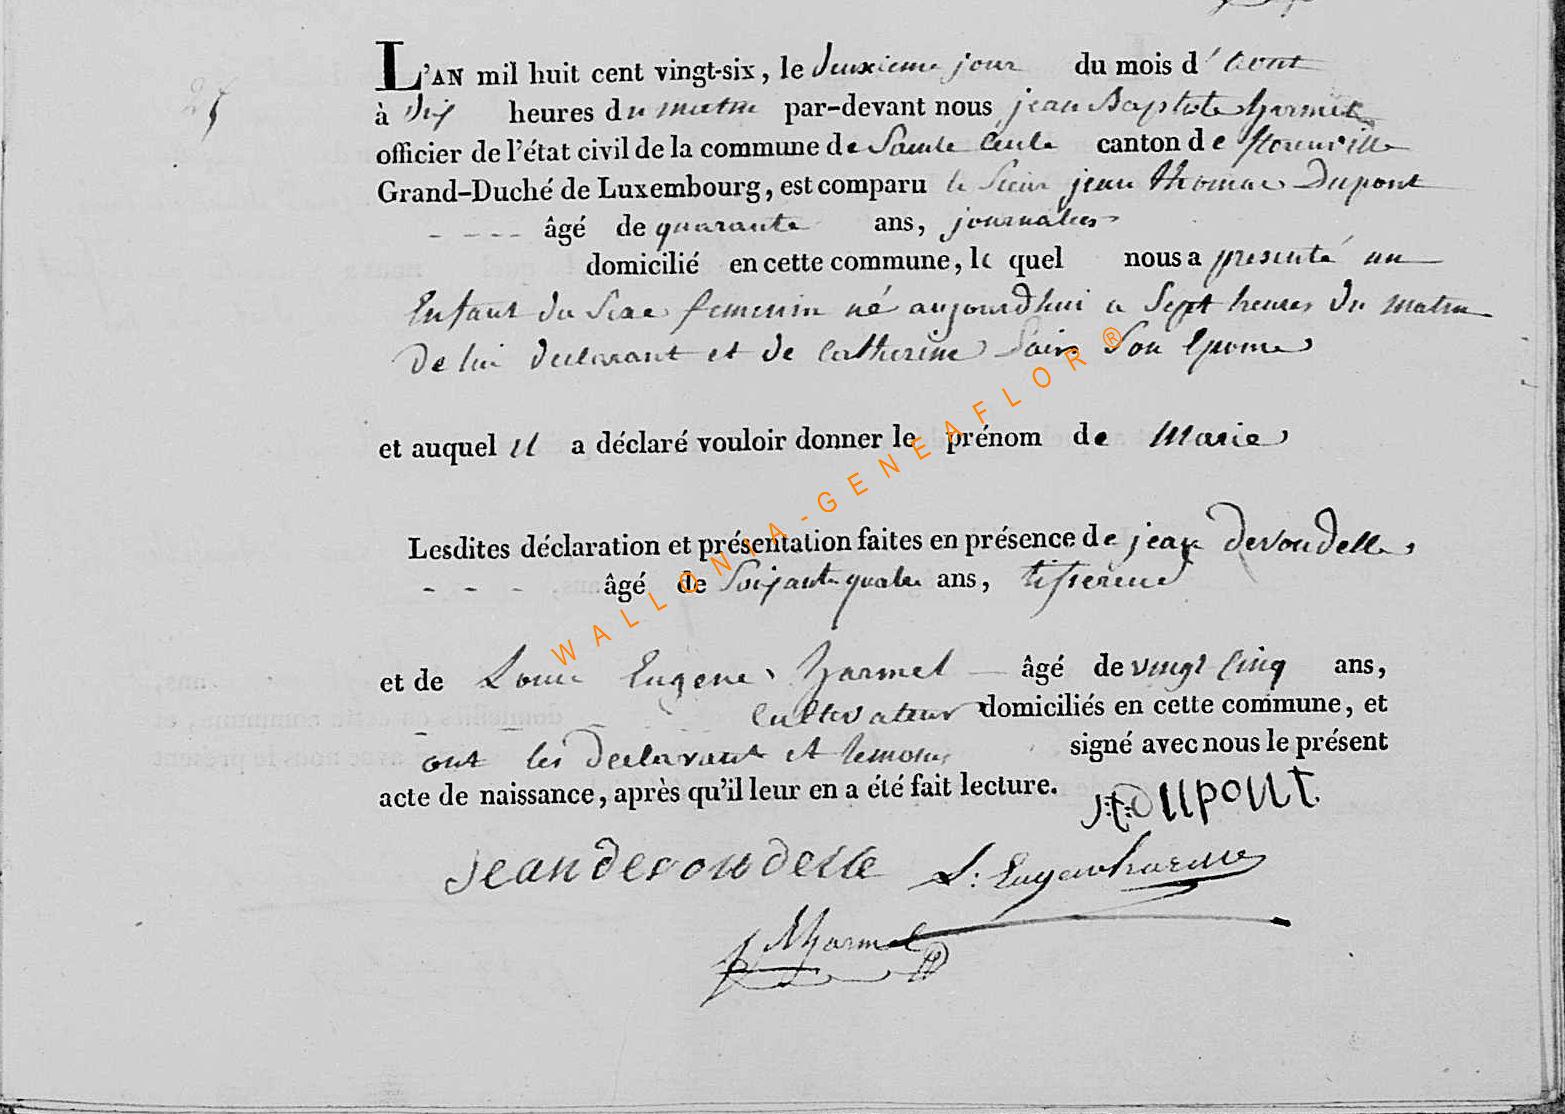 25
L'AN mil huit cent vingt-six, le deuxieme jour du mois d'Aout
à dix heures du matin par-devant nous jean Baptiste harmel
officier de l'état civil de la commune de Sainte Cecile canton de florenville
Grand-Duché de Luxembourg, est comparu le Sieur jean thomas Dupont
âgé de quarante ans, journalier
domicilié en cette commune, le quel nous a presenté un
Enfant du Sexe femenin né aujourdhui a Sept heures du matin
de lui declarant et de Catherine Son Epouse
et auquel il a déclaré vouloir donner le prénom de Marie
Lesdites déclaration et présentation faites en présence de jean devoudelle
âgé de Soixante quatre ans, tisserend
et de Louis Eugene harmel âgé de vingt Cinq ans,
Cultivateur domiciliés en cette commune, et
ont les declarant et temoins signé avec nous le présent
acte de naissance, après qu'il leur en a été fait lecture.
J:t:Dupont
jean devoudelle L: Eugene harmel
harmel
WALLONIA-GENEAFLOR®